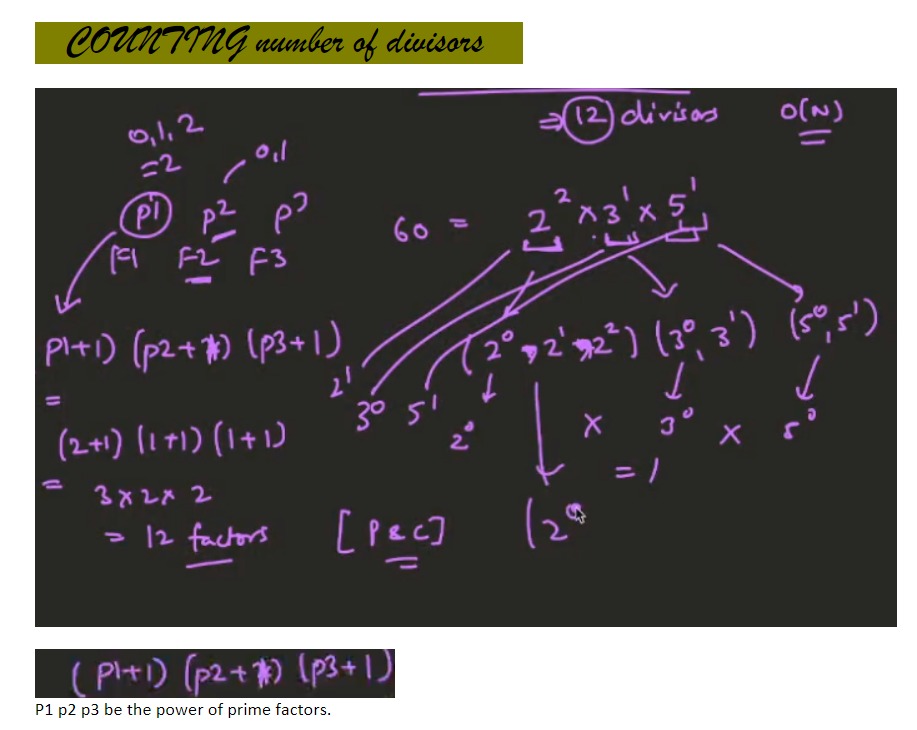 COUNTING number of divisors
⇒ 12 divisors O(N)
0,1,2
=2
0,1
P1 P2 P3
F1 F2 F3
60 = 2² × 3¹ × 5¹
P1+1) (P2+1) (P3+1)
=
(2+1) (1+1) (1+1)
= 3 × 2 × 2
= 12 factors
(2⁰, 2¹, 2²) (3⁰, 3¹) (5⁰, 5¹)
2¹ 3⁰ 5¹
2⁰ × 3⁰ × 5⁰
= 1
[P & C]
(2⁰
(P1+1) (P2+1) (P3+1)
P1 p2 p3 be the power of prime factors.